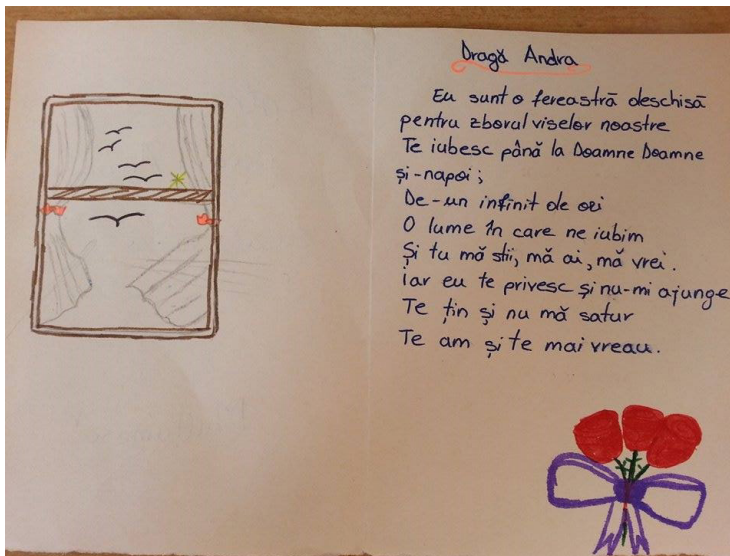 Dragă Andra
Eu sunt o fereastră deschisă
pentru zborul viselor noastre
Te iubesc până la Doamne Doamne
și-napoi ;
De-un infinit de ori
O lume în care ne iubim
Și tu mă stii, mă ai, mă vrei.
iar eu te privesc și nu-mi ajunge
Te țin și nu mă satur
Te am și te mai vreau.